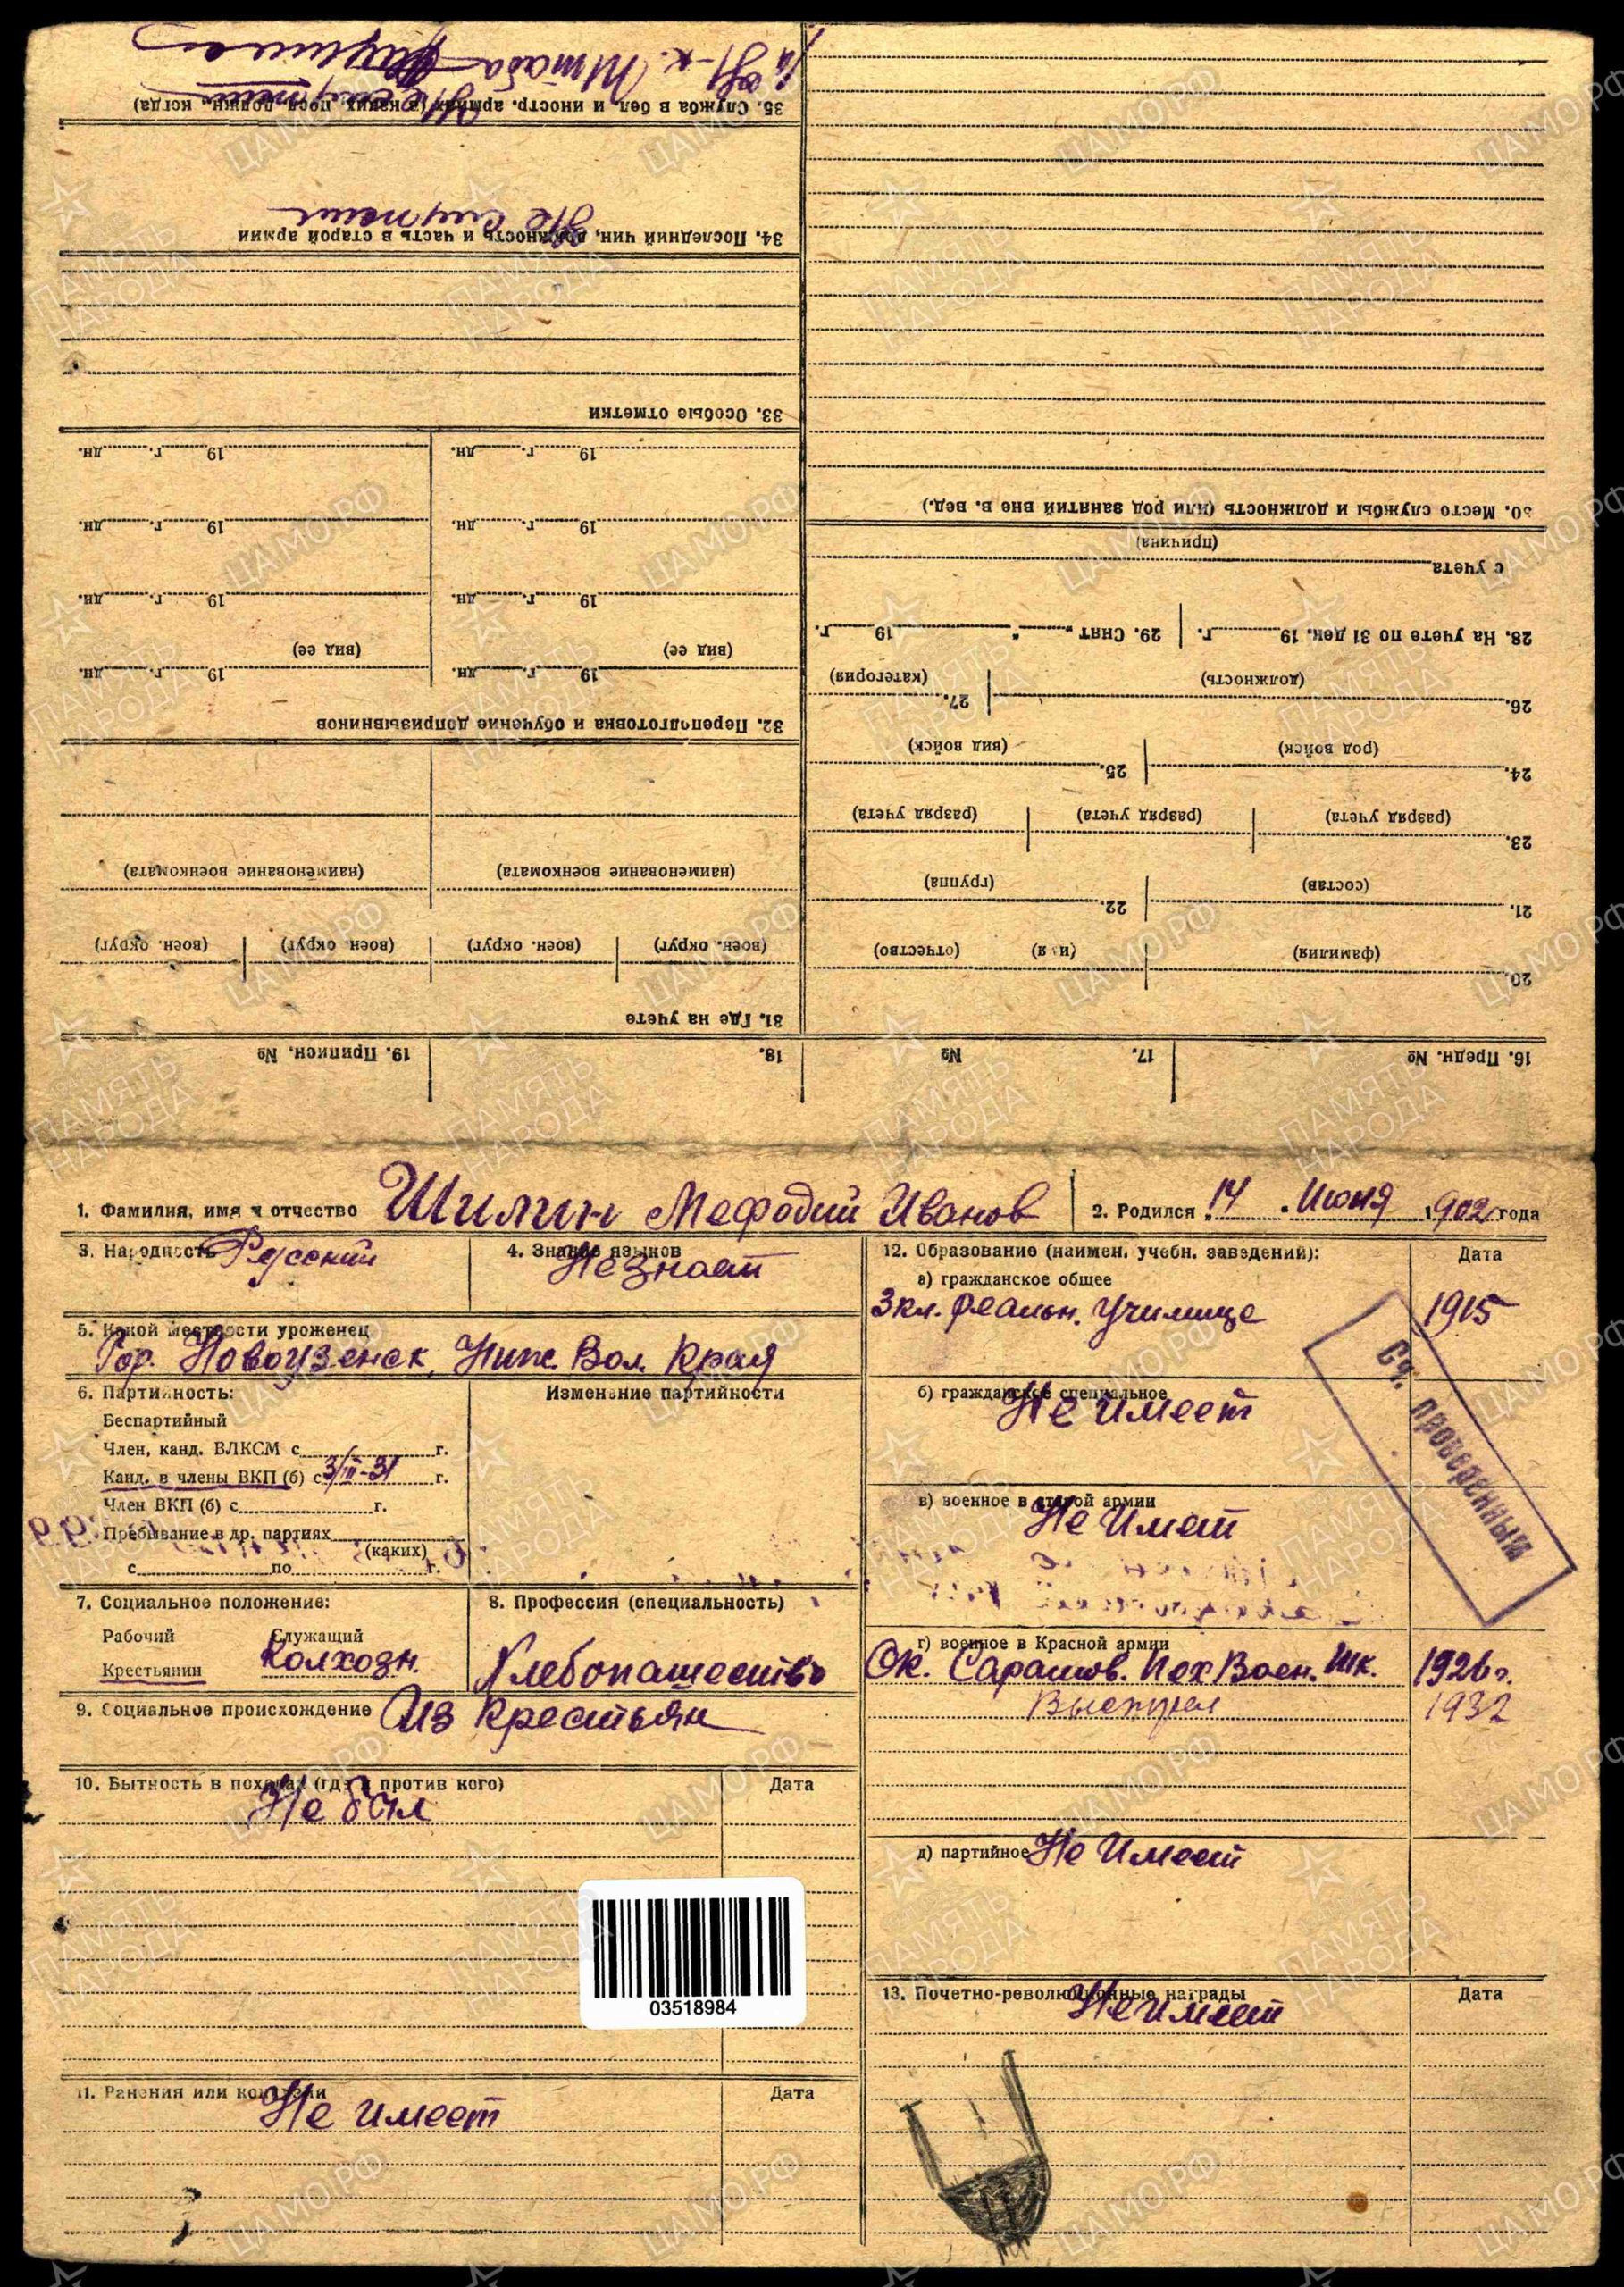 1. Фамилия, имя и отчество Шилин Мефодий Иванов
2. Родился 14 Июня 1902 года
3. Народность Русский
4. Знание языков Не знает
5. Какой местности уроженец
Гор. Новоузенск, Ниж. Вол. Края
6. Партийность:
Беспартийный
Член, канд. ВЛКСМ с г.
Канд. в члены ВКП (б) с 3/II-31 г.
Член ВКП (б) с г.
Пребывание в др. партиях
(каких)
с по г.
Изменение партийности
7. Социальное положение:
Рабочий Служащий
Крестьянин Колхозн.
8. Профессия (специальность)
Хлебопашество
9. Социальное происхождение Из крестьян
10. Бытность в походах (где и против кого) Дата
Не был
03518984
11. Ранения или контузии Дата
Не имеет
12. Образование (наимен. учебн. заведений): Дата
а) гражданское общее
3 кл. Реальн. Училище 1915
б) гражданское специальное
Не имеет
Сч. проверенным
в) военное в старой армии
Не имеет
г) военное в Красной армии
Ок. Саратов. Пех Воен. Шк. 1926 г.
Выстрел 1932
д) партийное Не Имеет
13. Почетно-революционные награды Дата
Не имеет
16. Предн. №
17. №
18.
19. Приписн. №
20.
(фамилия) (имя) (отчество)
21. 22.
(состав) (группа)
23.
(разряд учета) (разряд учета) (разряд учета)
24. 25.
(род войск) (вид войск)
26. 27.
(должность) (категория)
28. На учете по 31 дек. 19 г. 29. Снят „ “ 19 г.
с учета
(причина)
30. Место службы и должность (или род занятий вне в. вед.)
31. Где на учете
(воен. округ) (воен. округ) (воен. округ) (воен. округ)
(наименование военкомата) (наименование военкомата)
32. Переподготовка и обучение допризывников
19 г. дн. 19 г. дн.
(вид ее) (вид ее)
19 г. дн. 19 г. дн.
19 г. дн. 19 г. дн.
19 г. дн. 19 г. дн.
33. Особые отметки
34. Последний чин, должность и часть в старой армии
Не служил
35. Служба в бел и иностр. армиях (в каких, посл. должн., когда)
Не служил
Н-к. Штаба
ПАМЯТЬ НАРОДА
ЦАМО.РФ